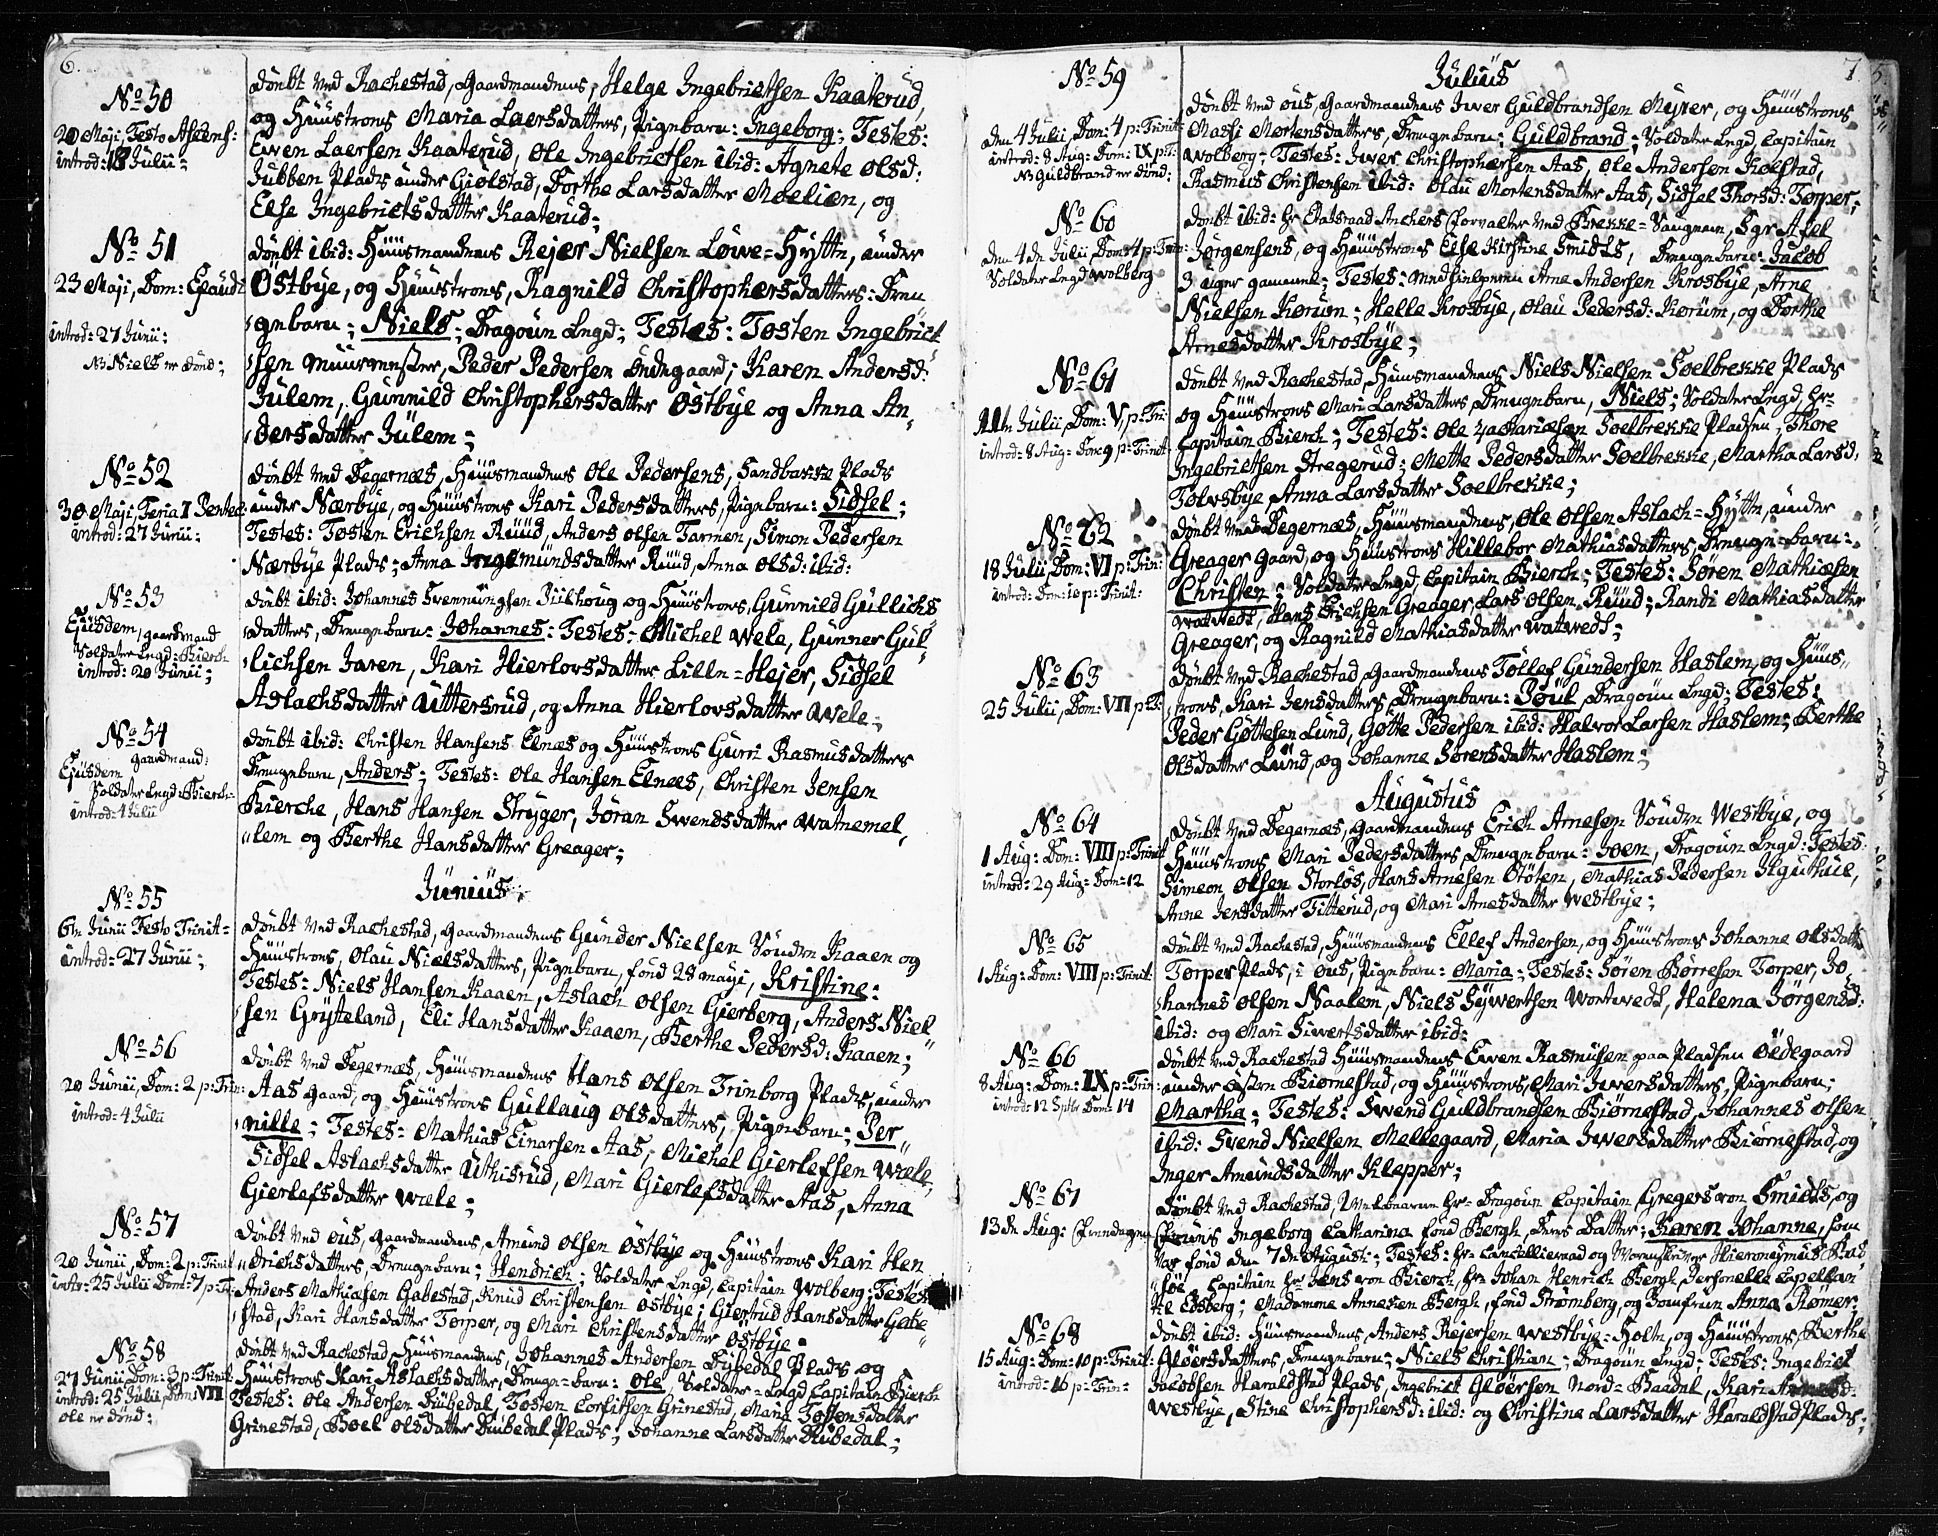 6.
No 50
20 Maji, Festo Ascens:
introd: 18 Julii;
Døubt ved Rachestad, Gaardmandens, Helge Ingebrietsen Kaaterud,
og Hüüstroes Maria Laersdatters, Pignbarn: Ingeborg; Testes:
Ewen Laersen Kaaterud, Ole Ingebrietsen ibid: Agnete Olsd:
Jubben Plads under Giølstad, Dorthe Larsdatter Moelien, og
Else Ingebrietsdatter Kaaterud;
No 51
23 Maji, Dom: Exaudi
introd: 27 Junii:
NB Niels er død;
døubt ibid: Hüüsmandens Rejer Nielsen Løwe=Hÿtte, under
Østbÿe, og Hüüstroes, Ragnild Christophersdatters: Dren
gebarn; Niels; Dragoun Legd; Testes: Tosten Ingebriet
sen Muurmester, Peder Pedersen Ondegaard; Karen Andersd:
Jülem, Gunnild Christophersdatter Østbÿe og Anna An-
dersdatter Jülem;
No 52
30 Maji, Feria I Pentec:
introd: 27 Junii;
døubt ved Degernæs, Hüüsmandens Ole Pedersens, Sandbakke Plads
under Nærbÿe, og Hüüstroes Kari Pedersdatters, Pignbarn: Sidsel;
Testes: Tosten Erichsen Rüüd, Anders Olsen Tarmen, Simon Pedersen
Nærbÿe Plads; Anna Ingemündsdatter Rüüd, Anna Olsd: ibid:
No 53
Ejusdem, gaardmand
Soldater Legd: Bierch
introd: 20 Junii;
døubt ibid: Johannes Svenningsen Piilhoug og Hüüstroes, Gunnild Güllichs
datters, Drengebarn: Johannes: Testes: Michel Wele, Gunner Gul
lichsen Jaren, Kari Hierlovsdatter Lille=Hejer, Sidsel
Aslachsdatter Uttersrud, og Anna Hierlovsdatter Wele;
No 54
Ejusdem gaardmand:
Soldater Legd: Bierch
introd: 4 Julii
døubt ibid: Christen Hansens Elnæs og Hüüstroes Gurri Rasmusdatters
Drengebarn, Anders; Testes: Ole Hansen Elnæs, Christen Jensen
Bierche, Hans Hansen Strÿger, Joran Swendsdatter Watnemel,
lem og Berthe Hansdatter Greager;
Junius
No 55
6te Junii Festo Trinit:
introd: 27 Junii;
døubt ved Rachestad, Gaardmandens Gunder Nielsen Sønden Kaaen og
Hüüstroes, Olau Nielsdatters, Pignbarn, fød 28 Maji, Kristine:
Testes: Niels Hansen Kaaen, Aslach Olsen Gierberg, Anders Niel
sen Grÿteland, Eli Hansdatter Kaaen, Berthe Pedersd: Kaaen;
No 56
20 Junii, Dom: 2 p: Trin:
introd: 4 Julii
døubt ved Degernæs, Hüüsmandens Hans Olsen Trimborg Plads, under
Aas gaard, og Hüüstroes Gullaug Olsdatters, Pignbarn; Per
nille; Testes: Mathias Einarsen Aas, Michel Gierlefsen Wæle,
Sidsel Aslachsdatter Uthisrud, Mari Gierlefsdatter Aas, Anna
Gierlefsdatter Wæle;
No 57
20 Junii, Dom: 2 p: Trinit
intr: 25 Julii Dom: 7 p: Tr:
døubt ved Øus, Gaardmandens, Amund Olsen Østbÿe og Hüüstroes Kari Hen
drichsdatters, Drengebarn; Hendrich; Soldater Legd, Capitain Wolberg; Testes
Anders Mathiasen Gabestad, Knud Christensen Østbÿe; Giertrud Hansdatter Gabe
stad, Kari Hansdatter Torper, og Mari Christensdatter Østbÿe:
No 58
27 Junii Dom: 3 p: Trinit:
introd: 25 Julii, Dom: VII
Ole er død;
døubt ved Rachestad, Hüüsmandens, Johannes Andersen Bÿbedal Plads og
Hüüstroes Kari Aslachsdatter, Drenge=barn: Ole, Soldater=Legd, Capitain Bierch
Testes: Ole Andersen Bübedal, Tosten Corfitsen Grinestad, Maria Tostensdatter
Grinestad, Boel Olsdatter Bübedal Plads; Johanne Larsdatter Bübedal;
7
Julius
No 59
den 4 Julii, Dom: 4 p: Trinit:
introd: 8 Aug: Dom: IX p: Tr:
NB Guldbrand er død:
døubt ved Øus, Gaardmandens Iwer Guldbrandsen Mÿrer, og Hüüstroes
Massi Mortensdatters, Drengebarn: Guldbrand; Soldater Legd, Capitain
Wolberg: Testes: Iwer Christophersen Aas, Ole Andersen Kolstad,
Rasmus Christensen ibid: Olau Mortensdatter Aas, Sidsel Thorsd: Torper;
No 60
den 4de Julii Dom: 4 p: Trin:
Soldater Legd Wolberg
døubt ibid: Hr Etatsraad Anchers Forvalter ved Brekke=Saugene, Sgr Axel
Jørgensens, og Hüüstroes Else Kirstine Smidts, Drengebarn: Jacob
3 uger gammel; Testes: Arne Andersen Krosbÿe, Arne
Nielsen Kørum; Helle Krosbÿe, Olau Pedersd: Kørum, og Dorthe
Arnesdatter Krosbÿe;
No 61
11te Julii, Dom: V p: Tri:
introd: 8 Aug: Dom: 9 p: Trinit
døubt ved Rachestad, Hüüsmandens Niels Nielsen Soelbrekke Plads
og Hüüstroes Mari Larsdatters Drengebarn, Niels; Soldater Legd, Hr
Capitain Bierch; Testes: Ole Zachariæsen Soelbrekke Pladsen, Thore
Ingebrietsen Stregerud; Mette Pedersdatter Soelbrekke, Martha Larsd,
Tolvsbÿe Anna Larsdatter Soelbrekke;
No 62
18 Julii, Dom: VI p: Trin:
introd: Dom: 10 p: Trinit:
døubt ved Degernæs, Hüüsmandens, Ole Olsen Aslach=Hÿtte, under
Greager Gaard, og Hüüstroes Hillebor Mathiasdatters, Drenge=barn:
Christen; Soldater Legd, Capitain Bierch; Testes: Søren Mathiæsen
Watvedt, Hans Erichsen Greager, Lars Olsen Rüüd; Randi Mathiasdatter
Greager, og Ragnild Mathiasdatter Watvedt;
No 63
25 Julii, Dom: VII p: Tr:
døubt ved Rachestad, Gaardmandens Tollef Gundersen Haslem, og Hüüs
troes, Kari Jensdatters, Drengebarn: Poül, Dragoun Legd; Testes:
Peder Gøttesen Lund, Gøtte Pedersen ibid: Halvor Larsen Haslem; Berthe
Olsdatter Lund, og Johanne Sørensdatter Haslem;
Augustus
No 64
1 Aug: Dom: VIII p: Trinit
introd: 29 Aug: Dom: 12
døubt ved Degernæs, Gaardmandens Erich Arnesen Sønden Westbÿe, og
Hüüstroes Mari Pedersdatters Drengebarn: Joen, Dragoun Legd: Testes
Simeon Olsen Storløs, Hans Arnesen Otøten, Mathias Pedersen Skguthuil,
Anne Jensdatter Titterud, og Mari Arnesdatter Westbÿe;
No 65
1 Aug: Dom: VIII p: Trinit:
døubt ved Rachestad, Hüüsmandens Ellef Andersen, og Hüüstroes Johanne Olsdatter
Torper Plads, i Øus, Pignbarn: Maria; Testes: Søren Børresen Torper, Jo
hannes Olsen Naalem, Niels Sÿwertsen Wortwedt, Helena Jørgensd:
ibid: og Mari Siwertsdatter ibid:
No 66
8 Aug: Dom: IX p: Trin:
introd: 12 Sptbr Dom: 14
døubt ved Rachestad Hüüsmandens Ewen Rasmusen paa Pladsen Ødegaard
under Østen Biørnestad, og Hüüstroes, Mari Iwersdatters, Pignbarn;
Martha; Testes: Swend Guldbrandsen Biørnestad, Johannes Olsen
ibid: Svend Nielsen Mellegaard, Maria Iwersdatter Biørnestad, og
Inger Amundsdatter Klepper;
No 67
13de Aug: Fredagen
døubt ved Rachestad, Velbaarne Hr Dragoun Capitain Gregers von Smidts, og
Frues Ingeborg Catharina fød Bergh, Deres Datter; Karen Johanne, som
var fød den 7de August; Testes: Hr Cancellieraad og Sorenskriver Hieronymus Bas
søe, Capitain Hr Jens von Bierch, Hr Johan Henrich Bergh, Personelle Capellan
til Edsberg; Madamme Anneken Bergh, fød Strømberg, og Jomfruen Anna Rømer;
No 68
15 Aug: Dom: 10 p: Trinit:
introd: 16 p: Trin:
døubt ibid: Hüüsmandens, Anders Rejersen Westbÿe=Holte, og Hüüstroes, Berthe
Gloersdatters, Drengebarn; Niels Christian; Dragoun Legd: Testes: Ingebriet
Jacobsen Haraldstad Plads, Ingebriet Gloersen Nord=Baadal, Kari Arnesd:
Westbÿe, Stine Christophersd: ibid: og Christine Larsdatter Haraldstad Plads;